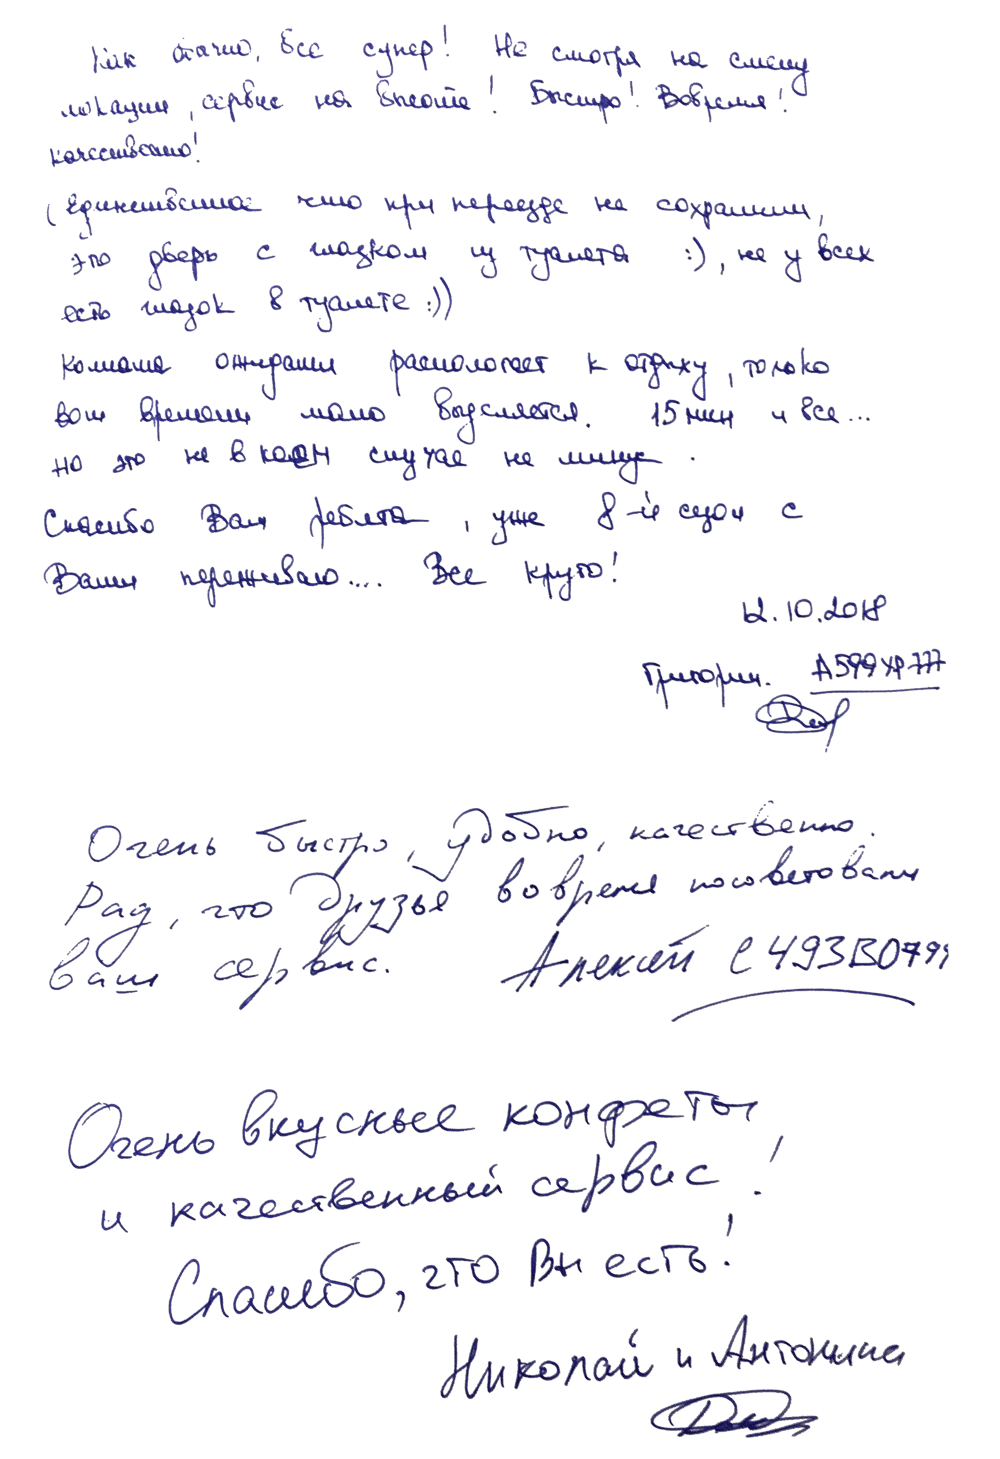 Как обычно, все супер! Не смотря на смену
локации, сервис на высоте! Быстро! Вовремя!
качественно!
(Единственное что при переезде не сохранили,
это дверь с глазком из туалета :), не у всех
есть глазок в туалете :))
комната ожидания распологает к отдыху, только
вот времени мало выделяется. 15 мин и все...
но это не в коем случае не минус.
Спасибо Вам ребята, уже 8-й сезон с
Вами переживаю.... Все круто!
12.10.2018
Григорий. А599ХР777
Очень быстро, удобно, качественно.
Рад, что друзья вовремя посоветовали
ваш сервис. Алексей С493ВО799
Очень вкусные конфеты
и качественный сервис!
Спасибо, что Вы есть!
Николай и Антонина